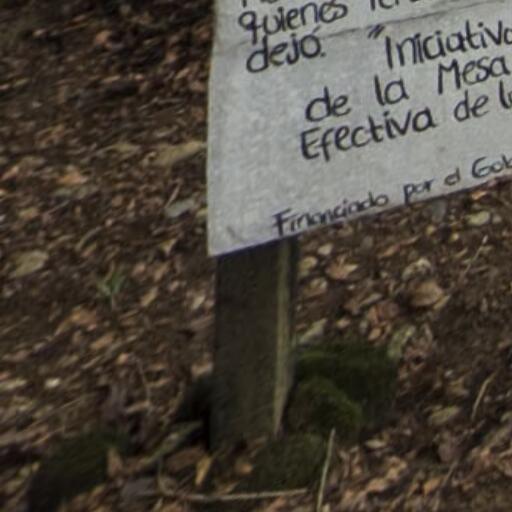 quienes
dejó. "Iniciativa
de la Mesa
Efectiva de
Financiado por el